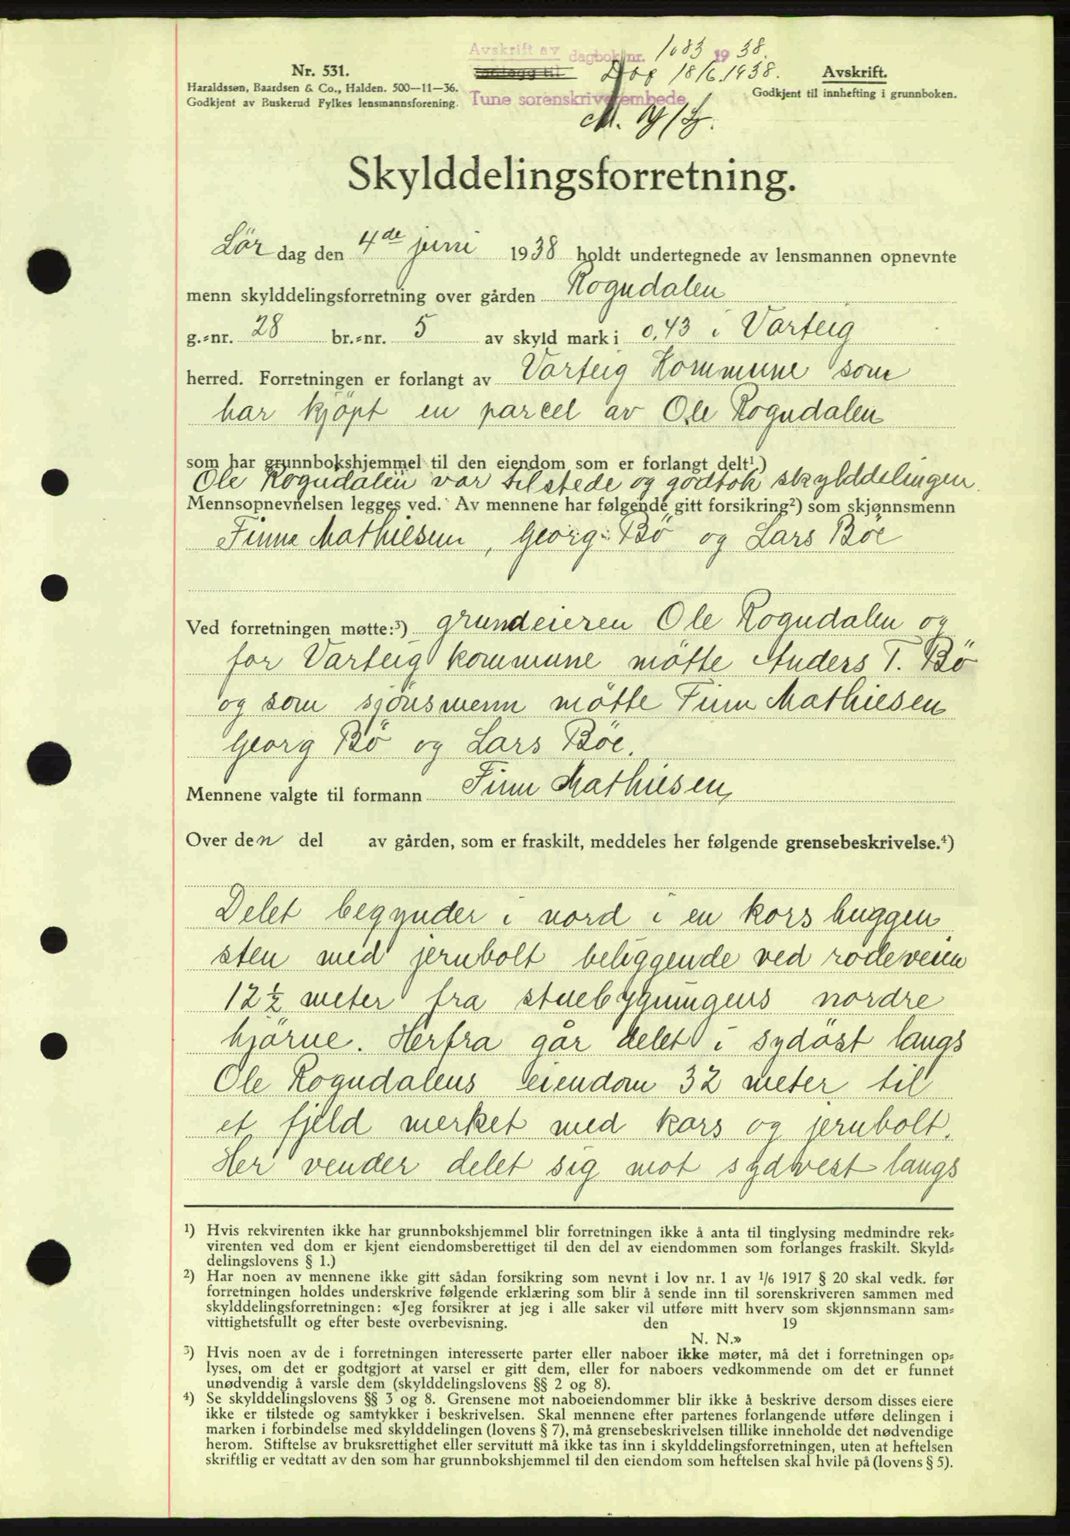 Avskrift av dagbok nr. 1083 1938.
Nr. 531. Dag 18/6.1938. Avskrift.
Haraldssen, Baardsen & Co., Halden. 500—11—36. Godkjent til innhefting i grunnboken.
Godkjent av Buskerud Fylkes lensmannsforening. Tune sorenskriverembede
Skylddelingsforretning.
Lör dag den 4de juni 1938 holdt undertegnede av lensmannen opnevnte
menn skylddelingsforretning over gården Rogndalen
g.-nr. 28 br.-nr. 5 av skyld mark i 0,43 i Varteig
herred. Forretningen er forlangt av Varteig Kommune som
har kjöpt en parcel av Ole Rogndalen
som har grunnbokshjemmel til den eiendom som er forlangt delt¹)
Ole Rogndalen var tilstede og godtok skylddelingen.
Mennsopnevnelsen legges ved. Av mennene har følgende gitt forsikring²) som skjønnsmenn
Finn Mathiesen, Georg Bö og Lars Böe
Ved forretningen møtte:³) grundeieren Ole Rogndalen og
for Varteig kommune mötte Anders T. Bö
og som sjönsmenn mötte Finn Mathiesen
Georg Bö og Lars Böe.
Mennene valgte til formann Finn Mathiesen,
Over den del av gården, som er fraskilt, meddeles her følgende grensebeskrivelse.⁴)
Delet begynder i nord i en kors huggen
sten med jernbolt beliggende ved rodeveien
12 ½ meter fra stuebygningens nordre
hjörne. Herfra går delet i sydöst langs
Ole Rogndalens eiendom 32 meter til
et fjeld merket med kors og jernbolt.
Her vender delet sig mot sydvest langs
¹) Hvis rekvirenten ikke har grunnbokshjemmel blir forretningen ikke å anta til tinglysing medmindre rek-
virenten ved dom er kjent eiendomsberettiget til den del av eiendommen som forlanges fraskilt. Skyld-
delingslovens § 1.)
²) Har noen av mennene ikke gitt sådan forsikring som nevnt i lov nr. 1 av 1/6 1917 § 20 skal vedk. før
forretningen holdes underskrive følgende erklæring som blir å sende inn til sorenskriveren sammen med
skylddelingsforretningen: «Jeg forsikrer at jeg i alle saker vil utføre mitt hverv som skjønnsmann sam-
vittighetsfullt og efter beste overbevisning. den 19
N. N.»
³) Hvis noen av de i forretningen interesserte parter eller naboer ikke møter, må det i forretningen op-
lyses, om det er godtgjort at varsel er gitt dem, eller for naboers vedkommende om det er funnet
unødvendig å varsle dem (skylddelingslovens §§ 2 og 8).
⁴) Se skylddelingslovens §§ 3 og 8. Grensene mot naboeiendommer blir ikke å beskrive dersom disses eiere
ikke er tilstede og samtykker i beskrivelsen. Skal mennene efter partenes forlangende utføre delingen i
marken i forbindelse med skylddelingen (lovens § 7), må grensebeskrivelsen tillike inneholde det nødvendige
herom. Stiftelse av bruksrettighet eller servitutt må ikke tas inn i skylddelingsforretningen, uten at heftelsen
skriftlig er vedtatt av den som har grunnbokshjemmel til den eiendom som heftelsen skal hvile på (lovens § 5).